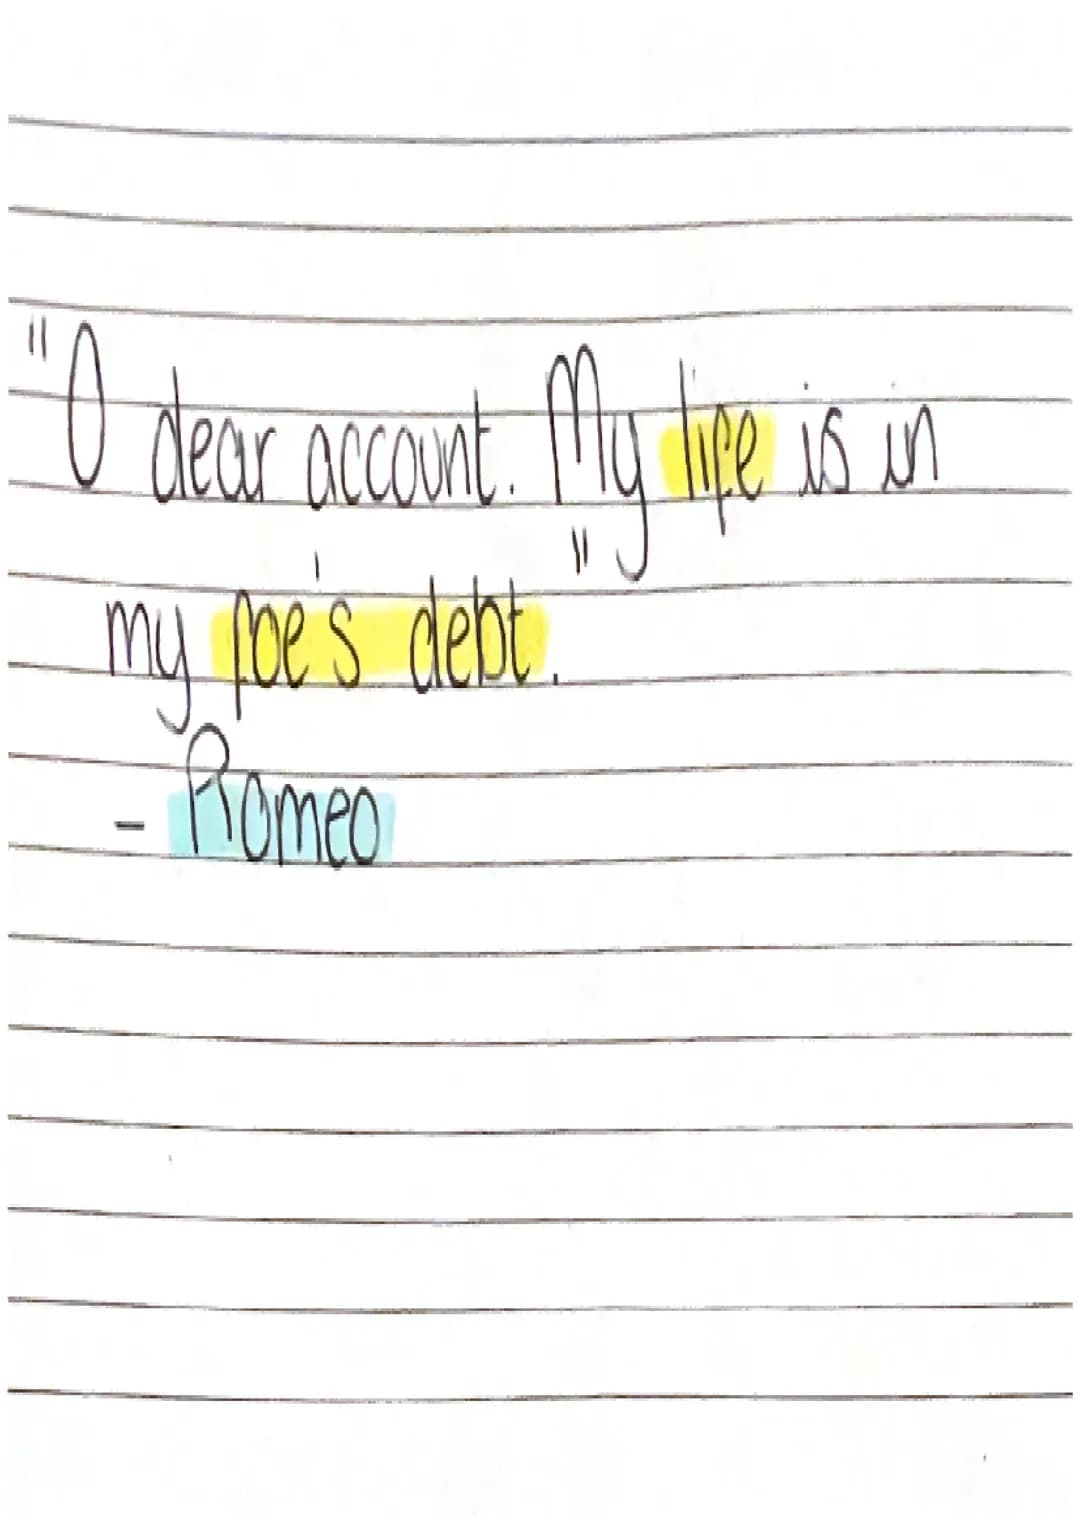 "O dear account. My life is in
my foe's debt."
- Romeo